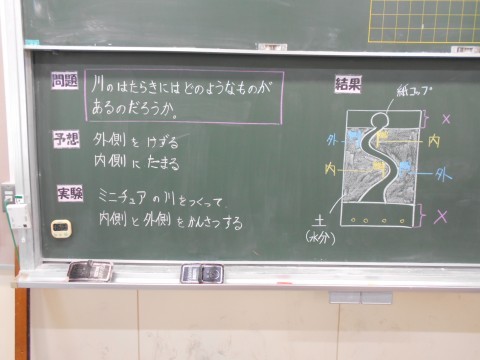 問題
川のはたらきにはどのようなものが
あるのだろうか。
予想
外側をけずる
内側にたまる
実験
ミニチュアの川をつくって
内側と外側をかんさつする
結果
紙コップ
×
外
内
内
外
×
土
(水分)